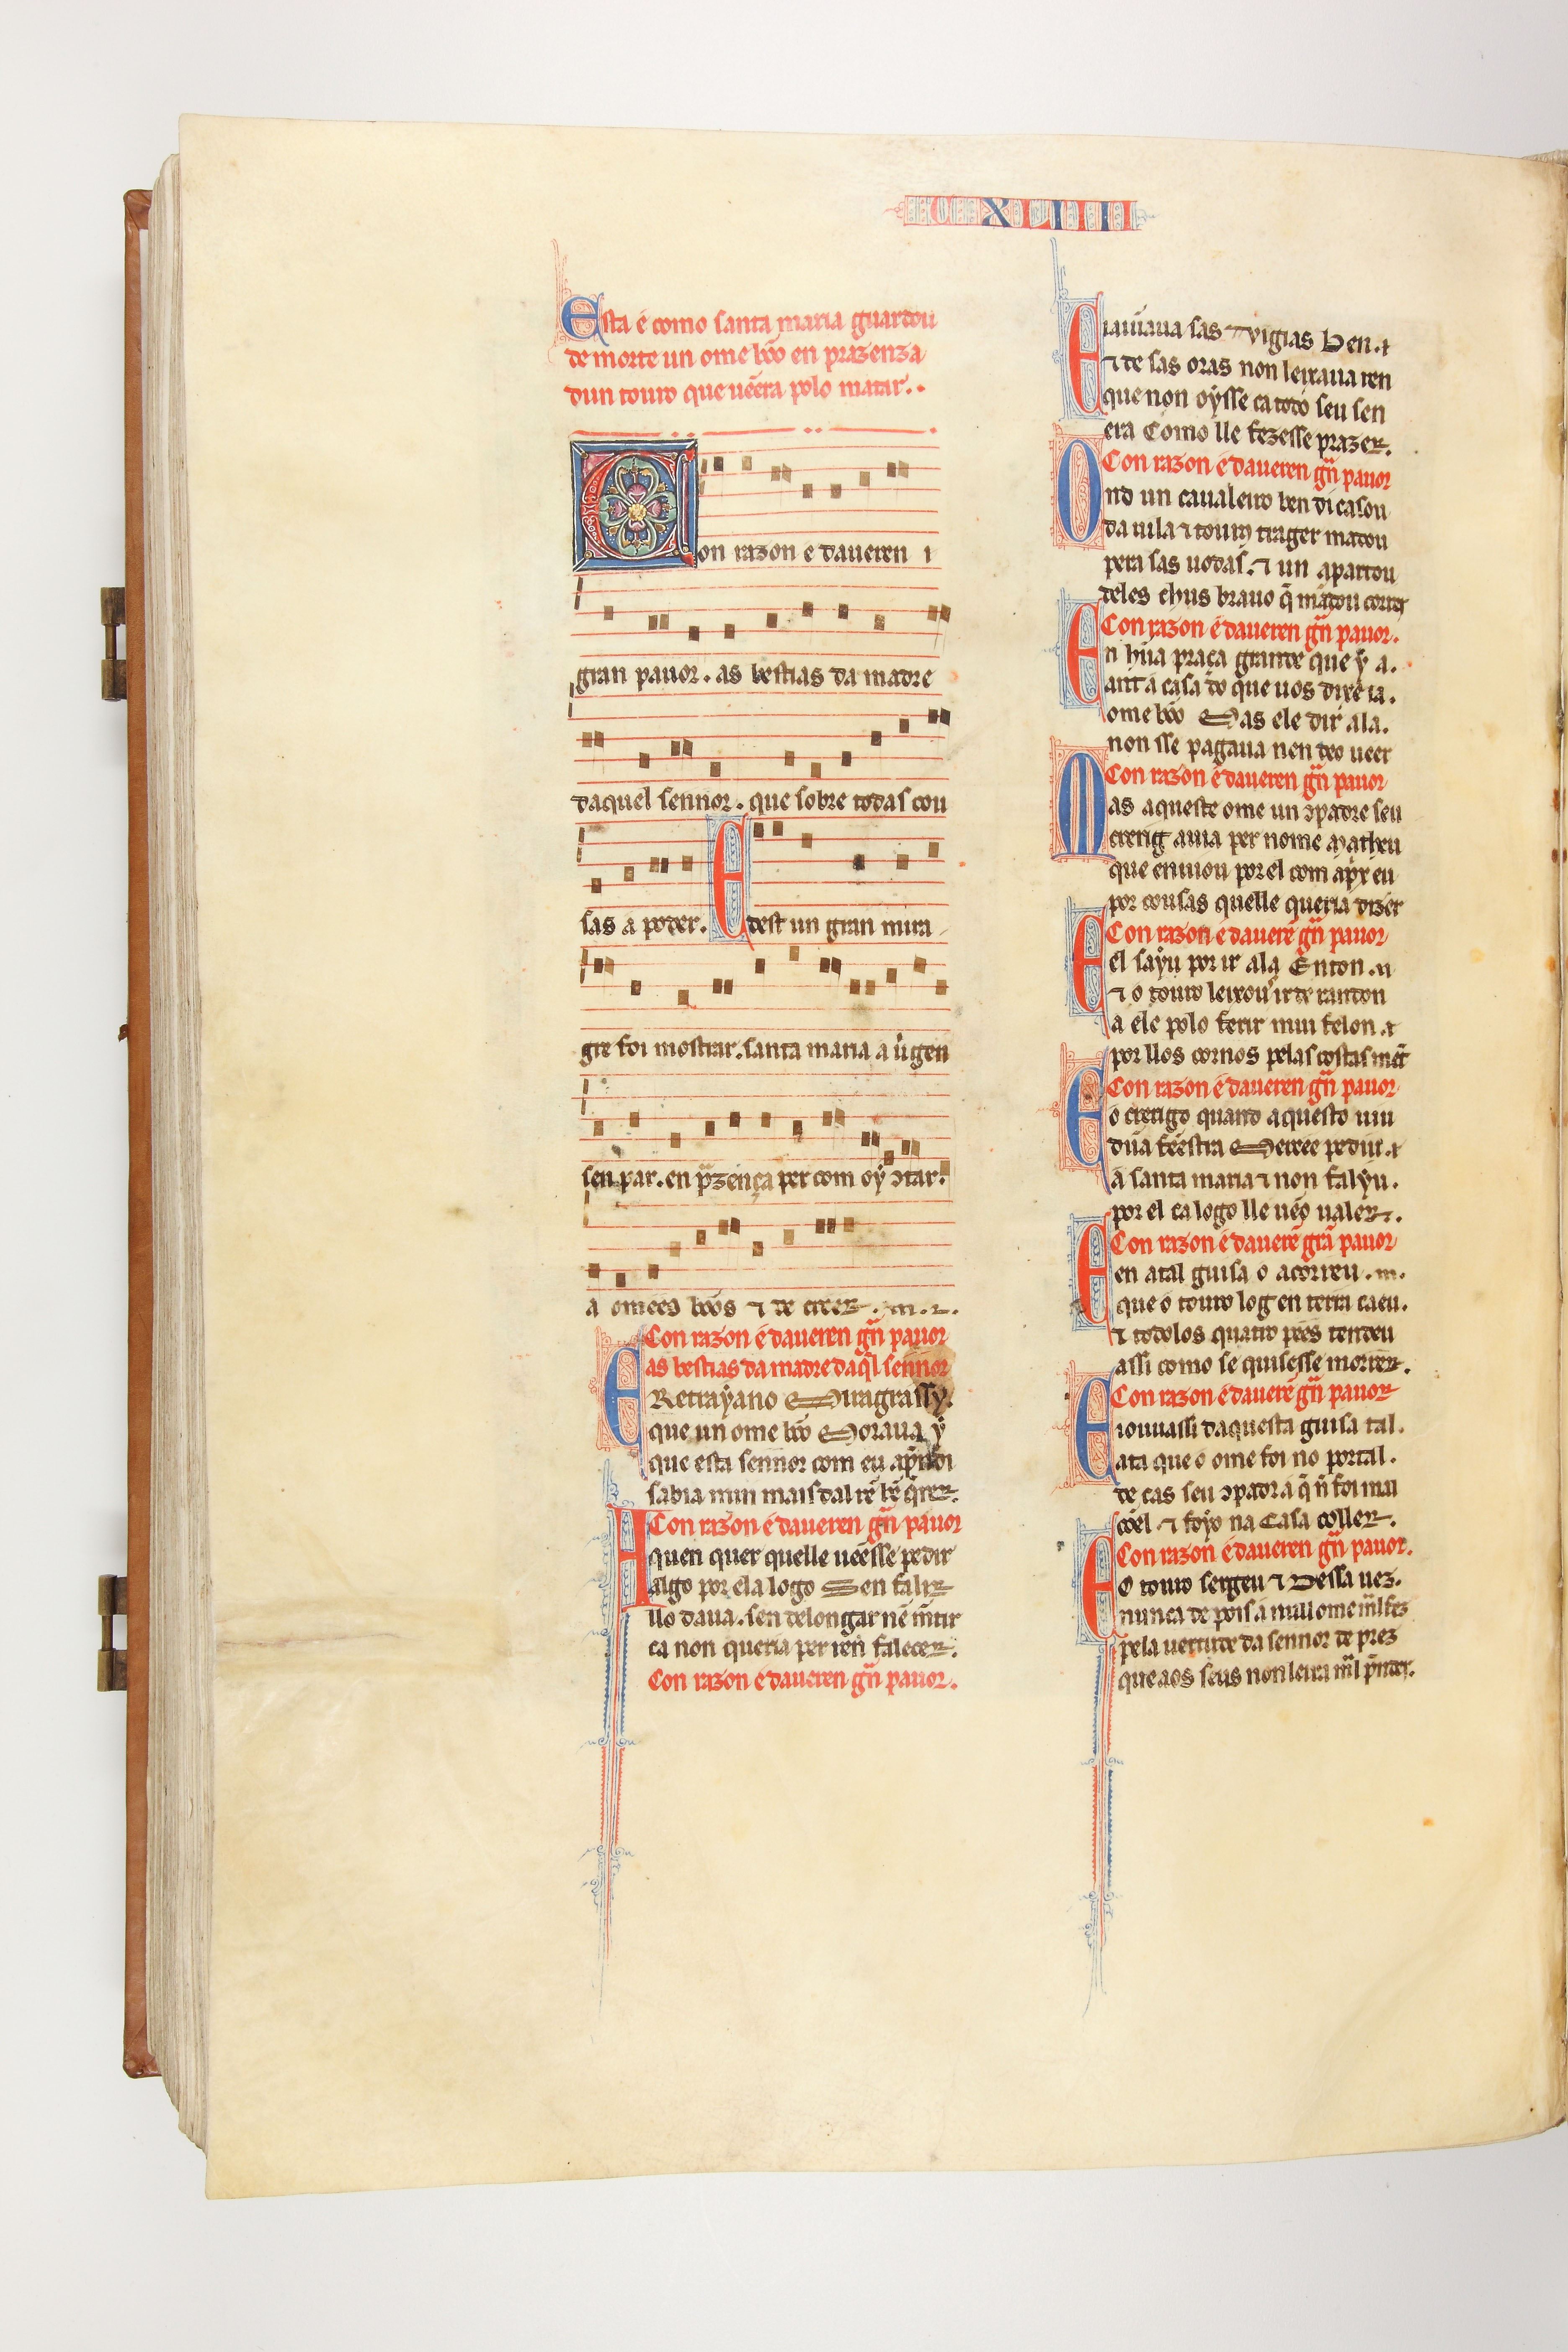 CXLIIII
Esta é como santa maria guardou
de morte un ome bõo en prazenza
dun touro que uẽera polo matar.
Con razon e daueren i
gran pauor. as bestias da madre
daquel sennor. que sobre todas cou
sas a poder. E dest un gran mira
gre foi mostrar. santa maria a uirgen
sen par. en p̃zença per com oý ↄtar.
a omees bõos ⁊ de creer.
Con razon é daueren gñ pauor
as bestias da madre daq̃l sennor
E Retraýano Miragrassý.
que un ome bõo Moraua ý
que esta sennor com eu ap̃ndi
sabia mui mais dal rẽ bẽ q̃rer.
Con razon é daueren gñ pauor
A quen quer quelle ueẽsse pedir
algo por ela logo Sen falir
llo daua. sen delongar nẽ m̃tir
ca non queria per ren falecer.
Con razon e daueren gñ pauor.
E iaũaua sas Vigias Ben.
⁊ de sas oras non leixaua ren
que non oýsse ca todo seu sen
era Como lle fezesse prazer.
Con razon é daueren gñ pauor
Ond un caualeiro ben di casou
da uila ⁊ touros trager mãdou
pera sas uodas. ⁊ un apartou
deles chus brauo q̃ mãdou correr
Con razon é daueren gñ pauor.
En hũa praça grande que ý a.
ant a casa do que uos dixe ia.
ome bõo Mas ele dir ala.
non sse pagaua nen deo ueer
Con razon é daueren gñ pauor
Mas aqueste ome un ↄpadre seu
crerig auia per nome Matheu
que enuiou por el com ap̃x eu
por cousas quelle queria dizer
Con razon é daueré gñ pauor
E el saýu por ir ala Enton.
⁊ o touro leixou ir de randon
a ele polo ferir mui felon.
por llos cornos pelas costas met̃
Con razon é daueren gñ pauor
E o crerigo quando aquesto uiu
dũa feẽstra Mercee pediu.
a santa maria ⁊ non falýu.
por el ca logo lle uẽo ualer.
Con razon é daueré grã pauor
E en atal guisa o acorreu.
que o touro log en terra caeu.
⁊ todolos quatro pees tendeu
assi como se quisesse morrer.
Con razon é daueré gñ pauor
E iouuassi daquesta guisa tal.
ata que o ome foi no portal.
de cas seu ↄpadr a q̃ ñ foi mal
cõel ⁊ foýo na Casa coller.
Con razon é daueren gñ pauor.
E o touro sergeu ⁊ Dessa uez.
nunca de pois a null ome m̃l fez
pela uertude da sennor de prez
que aos seus non leixa m̃l p̃nder.